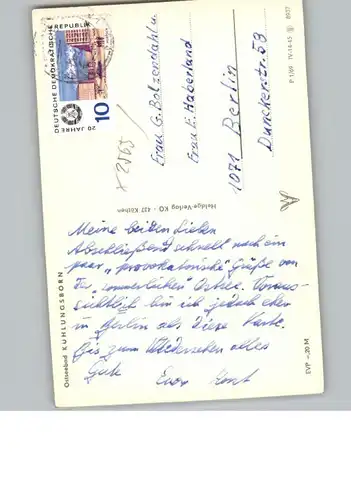 DEUTSCHE DEMOKRATISCHE REPUBLIK
20 JAHRE
10
x 2565
Frau G. Bolzendahl u.
Frau E. Haberland
1071 Berlin
Dunckerstr. 58
P 1/69 IV-14-45 8937
Heldge-Verlag KG · 437 Köthen
Ostseebad KÜHLUNGSBORN
EVP –,20 M
Meine beiden Lieben
Abschließend schnell noch ein
paar „provokatorische" Grüße von
der „sommerlichen" Ostsee. Voraus-
sichtlich bin ich jedoch eher
in Berlin als diese Karte.
Bis zum Wiedersehen alles
Gute Euer